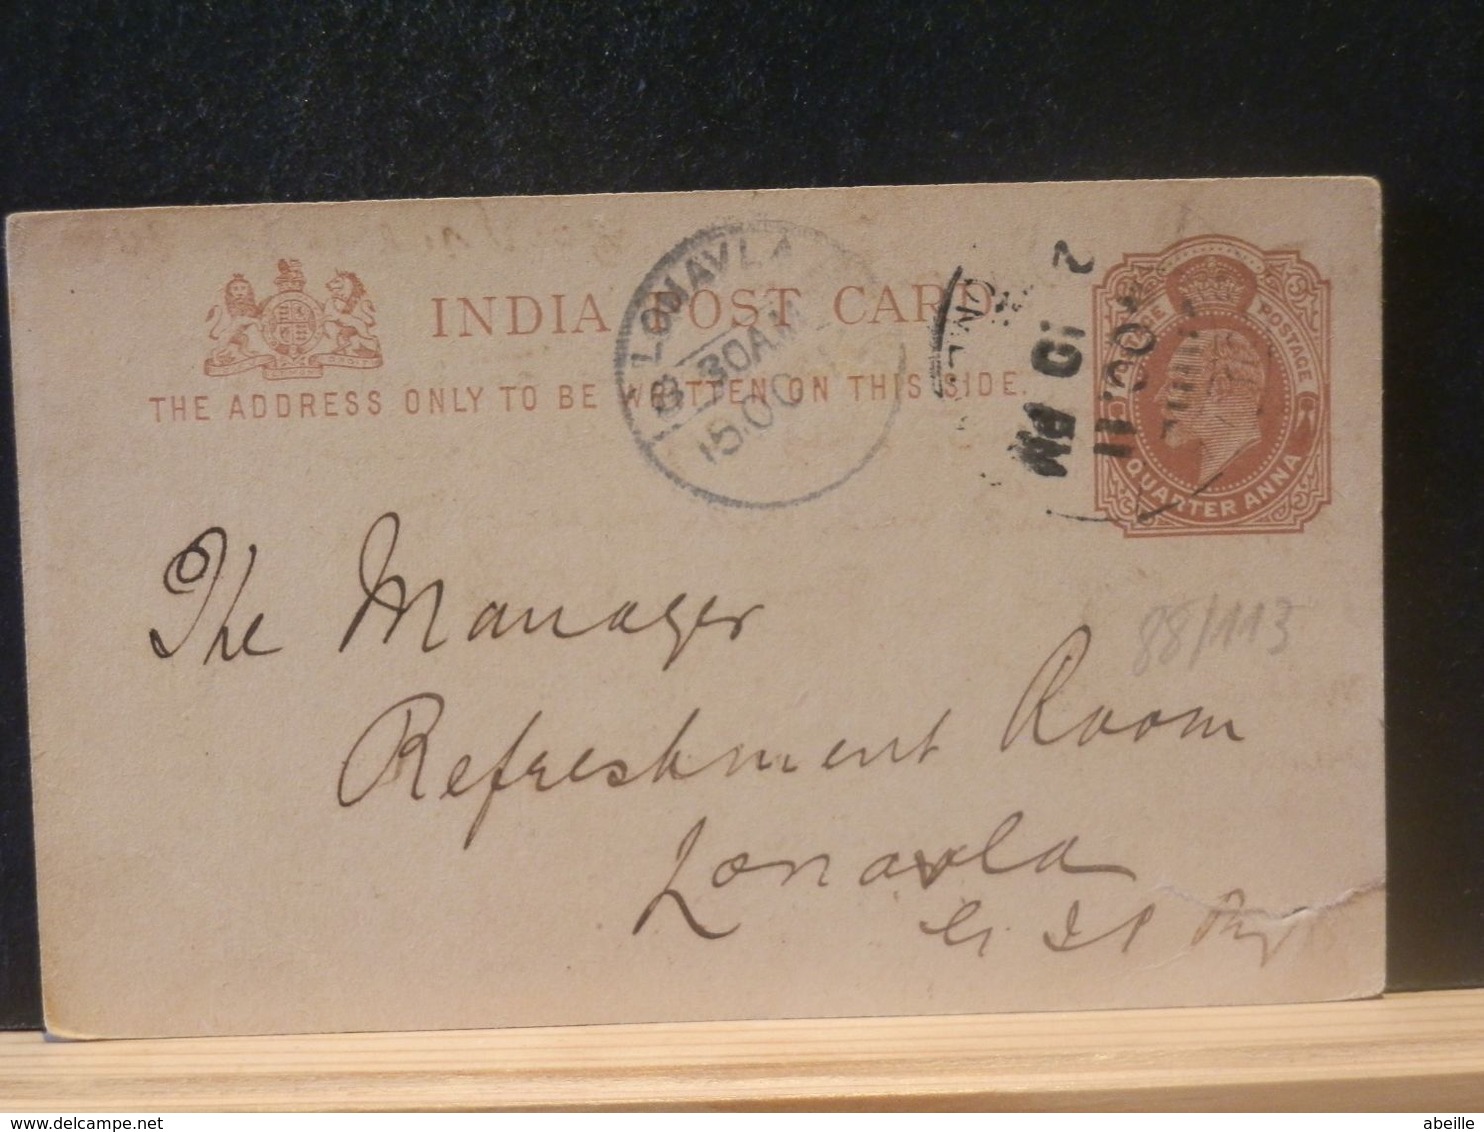 INDIA POST CARD
THE ADDRESS ONLY TO BE WRITTEN ON THIS SIDE.
LONAVLA
8-30AM
15.OC
2
10 PM
11
POSTAGE
QUARTER ANNA
The Manager
88/113
Refreshment Room
Lonavla
G I P Ry
delcampe.net
abeille